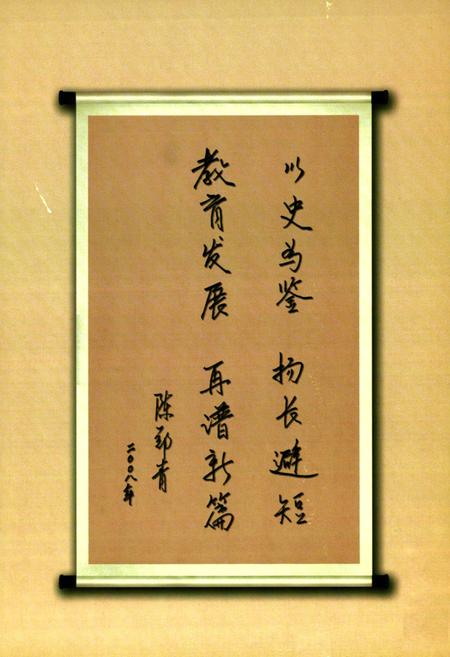 以史为鉴 扬长避短
教育发展 再谱新篇
陈勤青
二〇〇八年